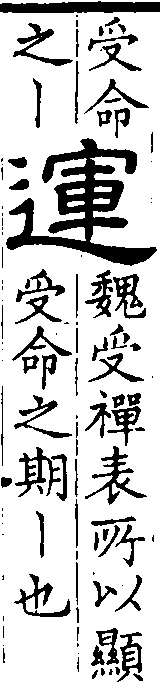 受命
之丨
運
魏受禪表所以顯
受命之期丨也